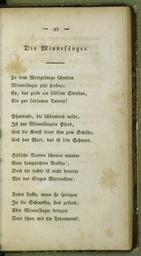 — 93 —
Die Minnesänger.
Zu dem Wettgesange schreiten
Minnesänger jetzt herbey;
Ey, das giebt ein seltsam Streiten,
Ein gar seltsames Turney!
Phantasie, die schäumend wilde,
Ist des Minnesängers Pferd,
Und die Kunst dient ihm zum Schilde,
Und das Wort, das ist sein Schwert.
Hübsche Damen schauen munter
Vom beteppichten Balkon',
Doch die rechte ist nicht drunter
Mit der
Andre Leute, wenn sie springen
In die Schranken, sind gesund;
Aber Minnesänger bringen
Dort schon mit die Todeswund'.